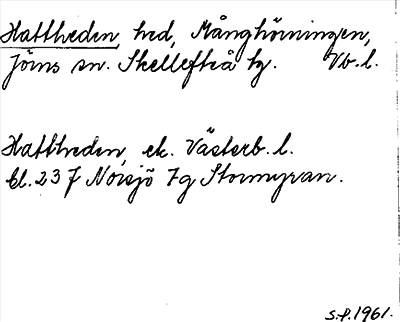 Hattheden, hed, Månghörningen,
Jörns sn. Skellefteå tg. Vb.l.
Hattheden, ek. Västerb. l.
bl. 23 J Norsjö 7g Stormyran.
S.F. 1961.